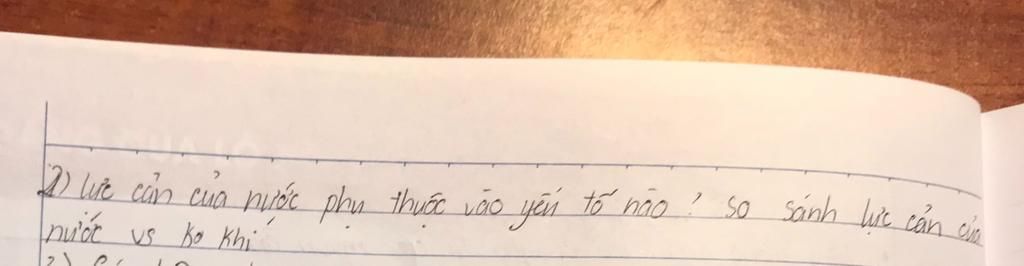 2) lực cản của nước phụ thuộc vào yếu tố nào? so sánh lực cản của
nước vs ko khí